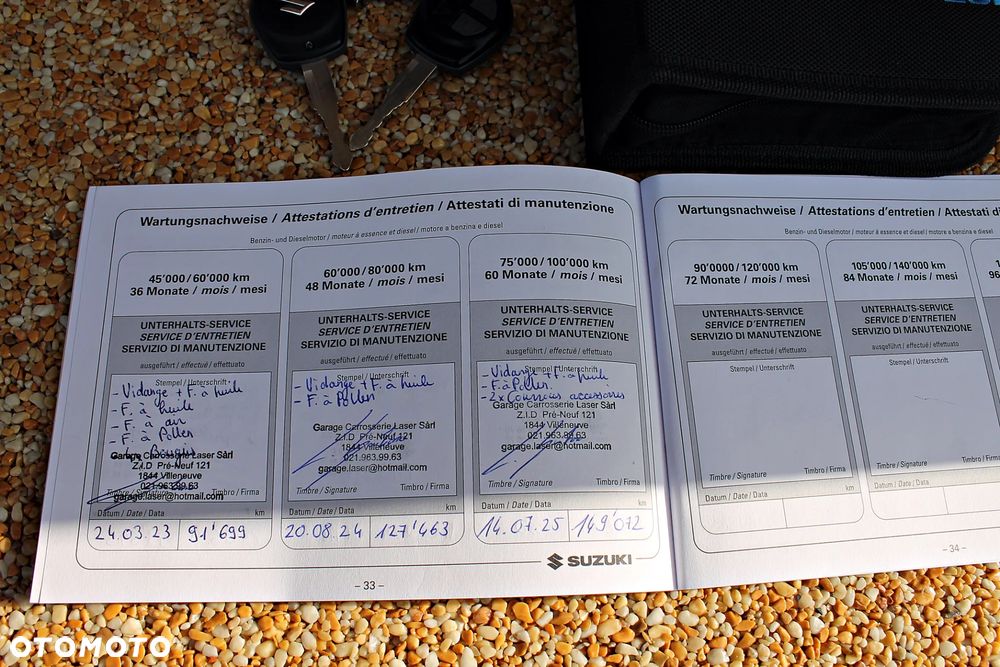 Wartungsnachweise / Attestations d'entretien / Attestati di manutenzione
Benzin- und Dieselmotor / moteur à essence et diesel / motore a benzina e diesel
45'000/60'000 km
36 Monate / mois / mesi
UNTERHALTS-SERVICE
SERVICE D'ENTRETIEN
SERVIZIO DI MANUTENZIONE
ausgeführt / effectué / effettuato
Stempel / Unterschrift
- Vidange + F. à huile
- F. à huile
- F. à air
- F. à Pollen
- Bougies
Garage Carrosserie Laser Sàrl
Z.I.D Pré-Neuf 121
1844 Villeneuve
021.963.99.63
garage.laser@hotmail.com
Timbre / Signature Timbro / Firma
Datum / Date / Data km
24.03.23 91'699
60'000/80'000 km
48 Monate / mois / mesi
UNTERHALTS-SERVICE
SERVICE D'ENTRETIEN
SERVIZIO DI MANUTENZIONE
ausgeführt / effectué / effettuato
Stempel / Unterschrift
- Vidange + F. à huile
- F. à Pollen
Garage Carrosserie Laser Sàrl
Z.I.D Pré-Neuf 121
1844 Villeneuve
021.963.99.63
garage.laser@hotmail.com
Timbre / Signature Timbro / Firma
Datum / Date / Data km
20.08.24 127'463
75'000/100'000 km
60 Monate / mois / mesi
UNTERHALTS-SERVICE
SERVICE D'ENTRETIEN
SERVIZIO DI MANUTENZIONE
ausgeführt / effectué / effettuato
Stempel / Unterschrift
- Vidange + F. à huile
- F. à Pollen
- 2x Courroies accessoires
Garage Carrosserie Laser Sàrl
Z.I.D Pré-Neuf 121
1844 Villeneuve
021.963.99.63
garage.laser@hotmail.com
Timbre / Signature Timbro / Firma
Datum / Date / Data km
14.07.25 149'072
SUZUKI
- 33 -
Wartungsnachweise / Attestations d'entretien / Attestati di
Benzin- und Dieselmotor / moteur à essence et diesel / motore a benzina e diesel
90'0000/120'000 km
72 Monate / mois / mesi
UNTERHALTS-SERVICE
SERVICE D'ENTRETIEN
SERVIZIO DI MANUTENZIONE
ausgeführt / effectué / effettuato
Stempel / Unterschrift
Timbre / Signature Timbro / Firma
Datum / Date / Data km
105'000/140'000 km
84 Monate / mois / mesi
UNTERHALTS-SERVICE
SERVICE D'ENTRETIEN
SERVIZIO DI MANUTENZIONE
ausgeführt / effectué / effettuato
Stempel / Unterschrift
Timbre / Signature Timbro / Firma
Datum / Date / Data km
96
- 34 -
OTOMOTO